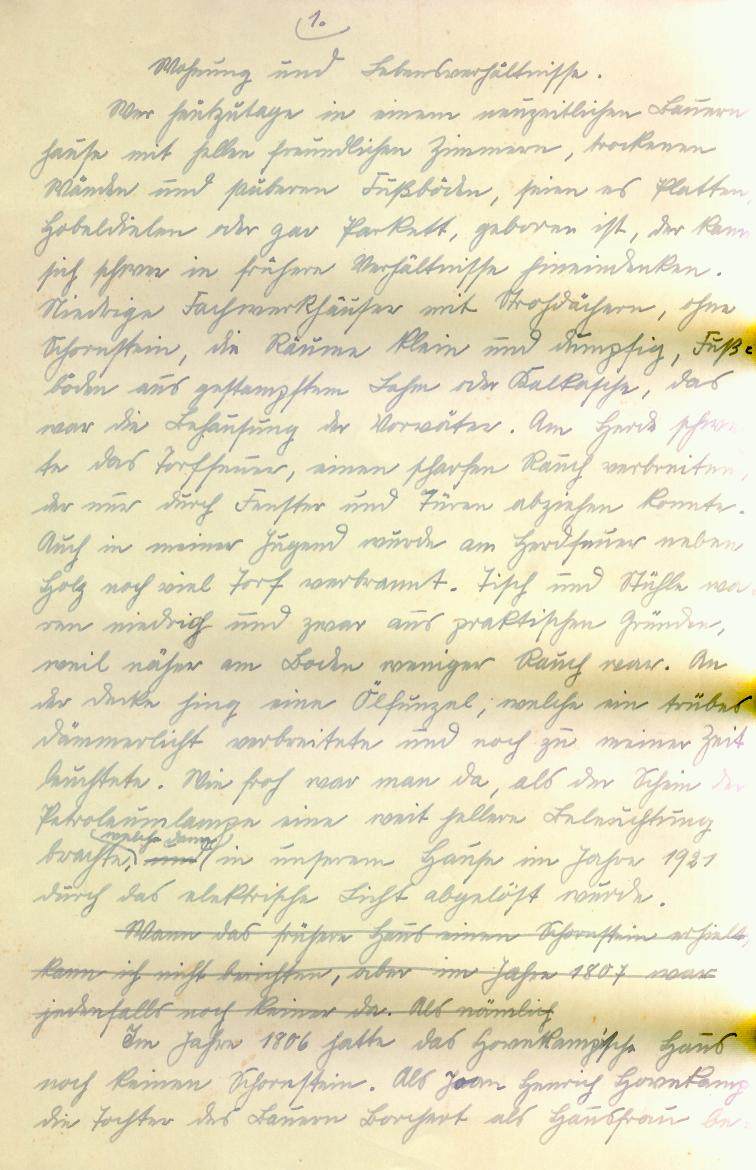 1.
Wohnung und Lebensverhältnisse.
Wer heutzutage in einem neuzeitlichen Bauern
hause mit hellen freundlichen Zimmern, trockenen
Wänden und sauberen Fußböden, seien es Platten,
Hobeldielen oder gar Parkett, geboren ist, der kann
sich schwer in frühere Verhältnisse hineindenken.
Niedrige Fachwerkhäuser mit Strohdächern, ohne
Schornstein, die Räume klein und dumpfig, Fuß=
böden aus gestampftem Lehm oder Kalkasche, das
war die Behausung der Vorväter. Am Herde schwe
te das Torffeuer, einen scharfen Rauch verbreitend,
der nur durch Fenster und Türen abziehen konnte.
Auch in meiner Jugend wurde am Herdfeuer neben
Holz noch viel Torf verbrannt. Tisch und Stühle wa
ren niedrig und zwar aus praktischen Gründen,
weil näher am Boden weniger Rauch war. An
der Decke hing eine Ölfunzel, welche ein trübes
Dämmerlicht verbreitete und noch zu meiner Zeit
leuchtete. Wie froh war man da, als der Schein der
Petroleumlampe eine weit hellere Beleuchtung
welche dann
brachte, und in unserem Hause im Jahre 1921
durch das elektrische Licht abgelöst wurde.
Wann das frühere Haus einen Schornstein erhielt,
kann ich nicht berichten, aber im Jahre 1807 war
jedenfalls noch keiner da. Als nämlich
Im Jahre 1806 hatte das Hovekamp'sche Haus
noch keinen Schornstein. Als Joan Henrich Hovekamp
die Tochter des Bauern Borchert als Hausfrau be=